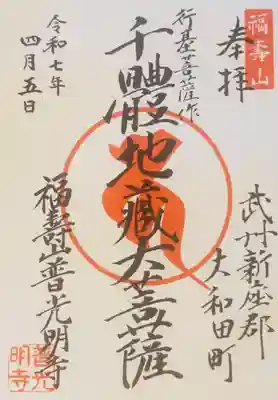 福壽山
奉拝
武州新座郡
大和田町
行基菩薩作
千體地蔵大菩薩
福壽山普光明寺
令和七年
四月五日
普光
明寺